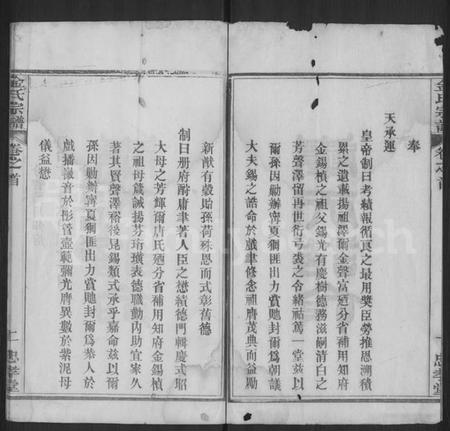 奉
天承運
皇帝制曰考績報循良之最用獎臣勞推恩溯積
累之遺載揚祖澤爾金聲富廼分省補用知府
金錫楨之祖父錫光有慶樹德務滋嗣清白之
芳聲澤留再世衍弓裘之令緒祜篤一堂茲以
爾孫因勦辦寧夏獨匪出力賞貤封爾為朝議
大夫錫之誥命於戲聿修念祖膺茂典而益勵
新猷有穀貽孫荷殊恩而式彰舊德
制曰冊府酬庸聿著人臣之懋績德門輯慶式昭
大母之芳輝爾唐氏廼分省補用知府金錫楨
之祖母箴誡揚芬珩璜表德職勤內助宜家久
著其賢聲澤裕後昆錫類式承乎嘉命茲以爾
孫因勦辦寧夏獨匪出力賞貤封爾為恭人於
戲播徽音於彤管壼範彌光膺異數於紫泥母
儀益懋
金氏宗譜
卷之首
一
忠孝堂